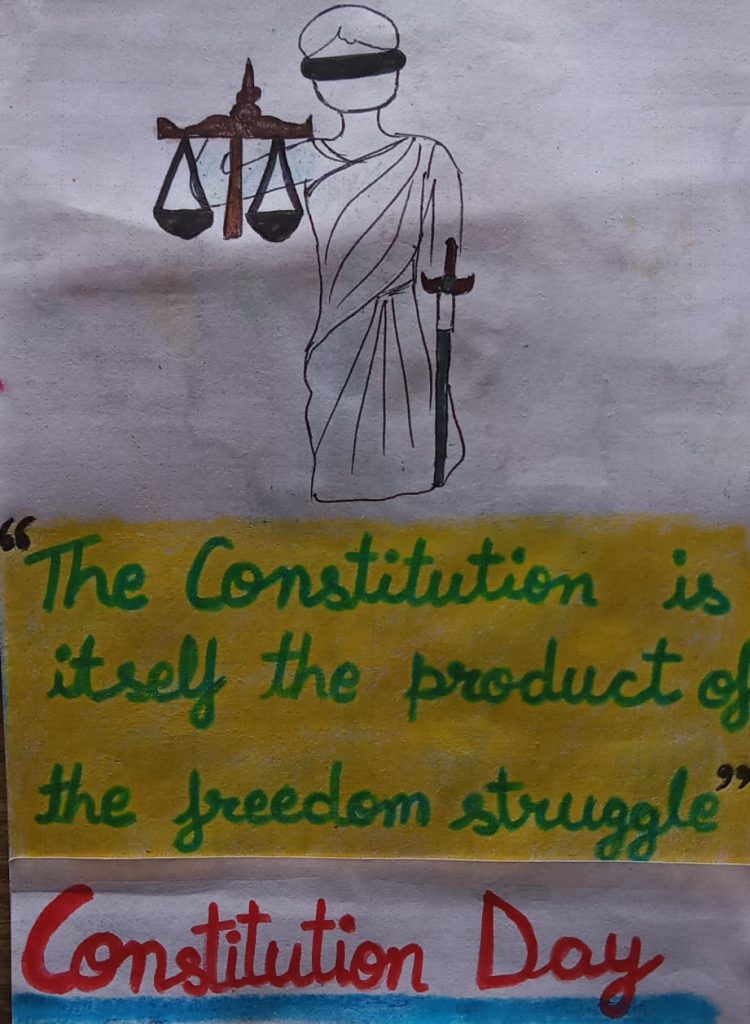 “The Constitution is
itself the product of
the freedom struggle”
Constitution Day